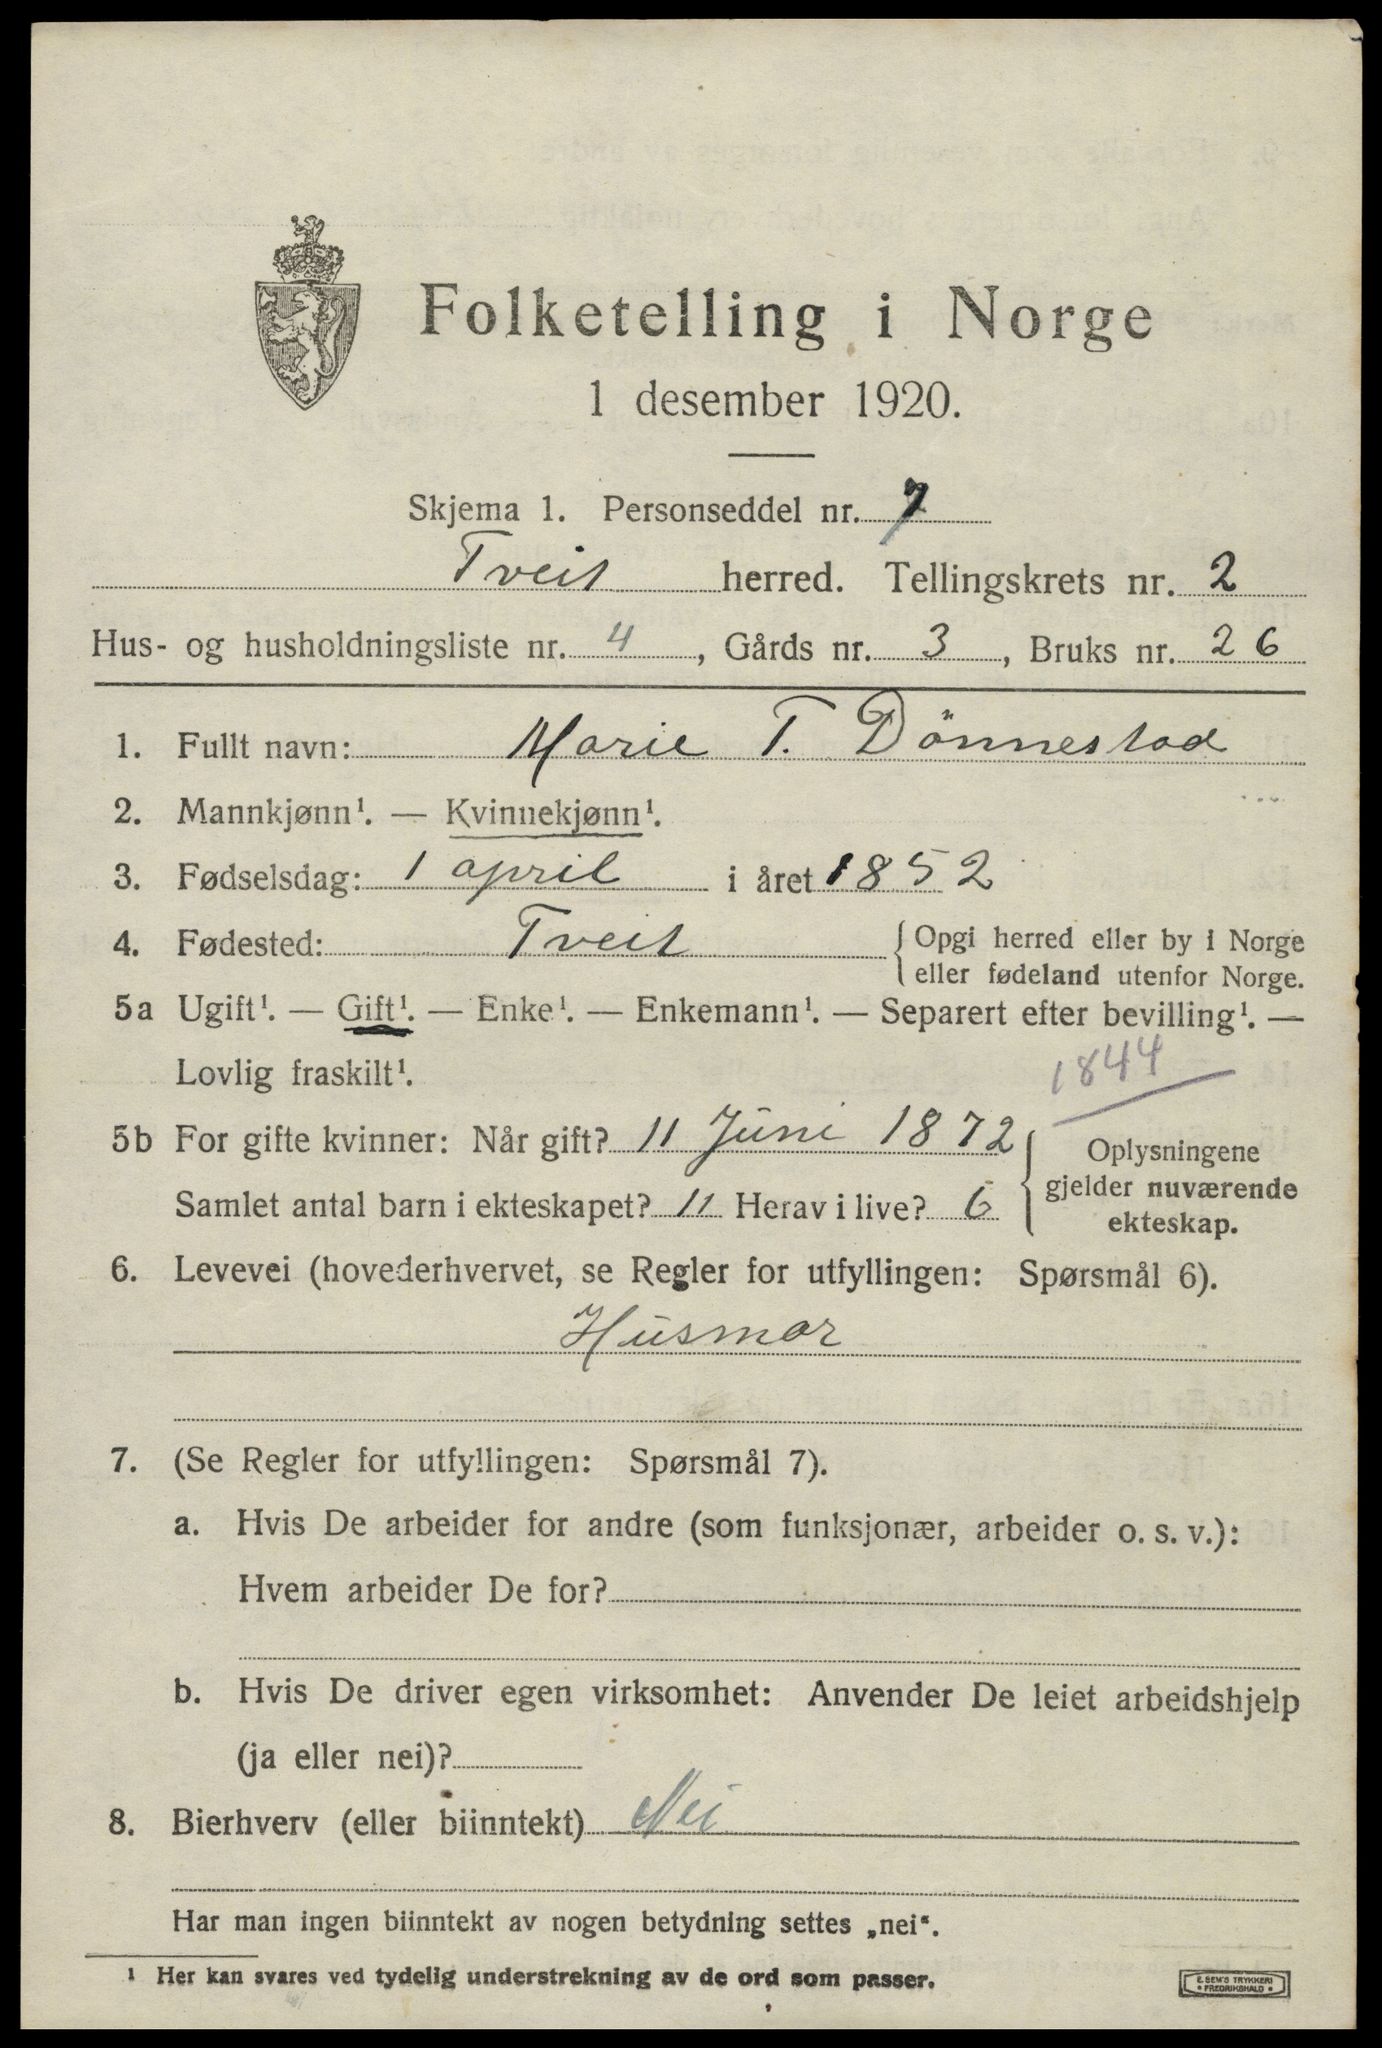 Folketelling i Norge
1 desember 1920.
Skjema 1. Personseddel nr. 7
Tveit herred. Tellingskrets nr. 2
Hus- og husholdningsliste nr. 4, Gårds nr. 3, Bruks nr. 26
1. Fullt navn: Marie T. Dönnestad
2. Mannkjønn¹. — Kvinnekjønn¹.
3. Fødselsdag: 1 april i året 1852
4. Fødested: Tveit { Opgi herred eller by i Norge
eller fødeland utenfor Norge.
5a Ugift¹. — Gift¹. — Enke¹. — Enkemann¹. — Separert efter bevilling¹. —
Lovlig fraskilt¹.
1844
5b For gifte kvinner: Når gift? 11 Juni 1872 { Oplysningene
gjelder nuværende
ekteskap.
Samlet antal barn i ekteskapet? 11 Herav i live? 6
6. Levevei (hovederhvervet, se Regler for utfyllingen: Spørsmål 6).
Husmor
7. (Se Regler for utfyllingen: Spørsmål 7).
a. Hvis De arbeider for andre (som funksjonær, arbeider o. s. v.):
Hvem arbeider De for?
b. Hvis De driver egen virksomhet: Anvender De leiet arbeidshjelp
(ja eller nei)?
8. Bierhverv (eller biinntekt) Nei
Har man ingen biinntekt av nogen betydning settes „nei“.
¹ Her kan svares ved tydelig understrekning av de ord som passer.
E. SEM'S TRYKKERI
• FREDRIKSHALD •